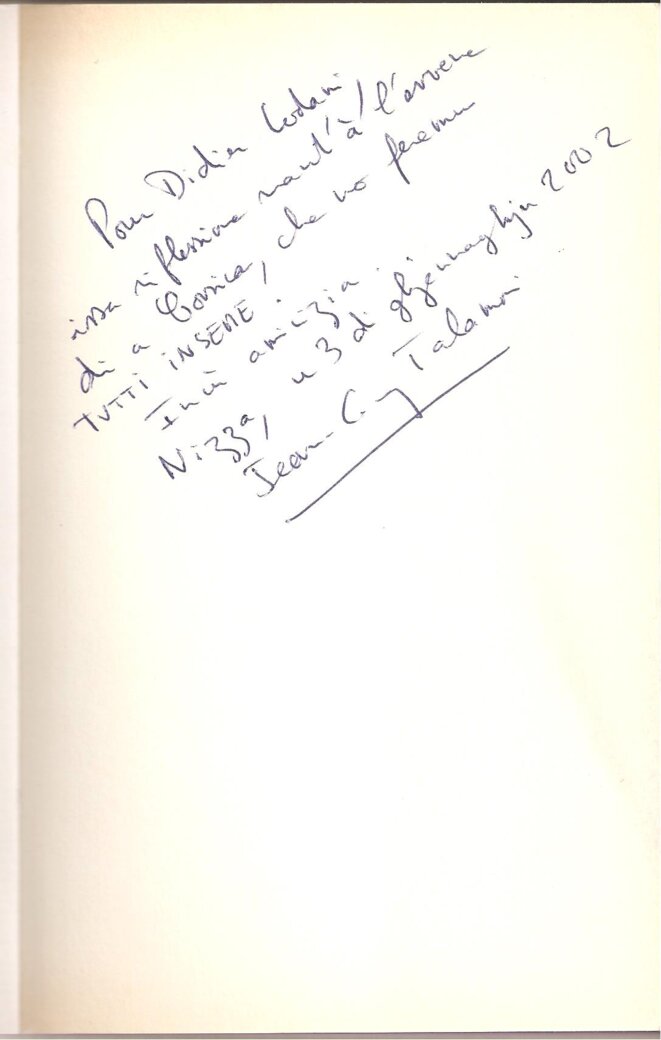 Pour Didier Codani,
issa riflessione nant'à l'avvene
di a Corsica, che no feremu
TUTTI INSEME.
In amicizia.
Nizza, u 3 di ghjennaghju 2002
Jean-Guy Talamoni